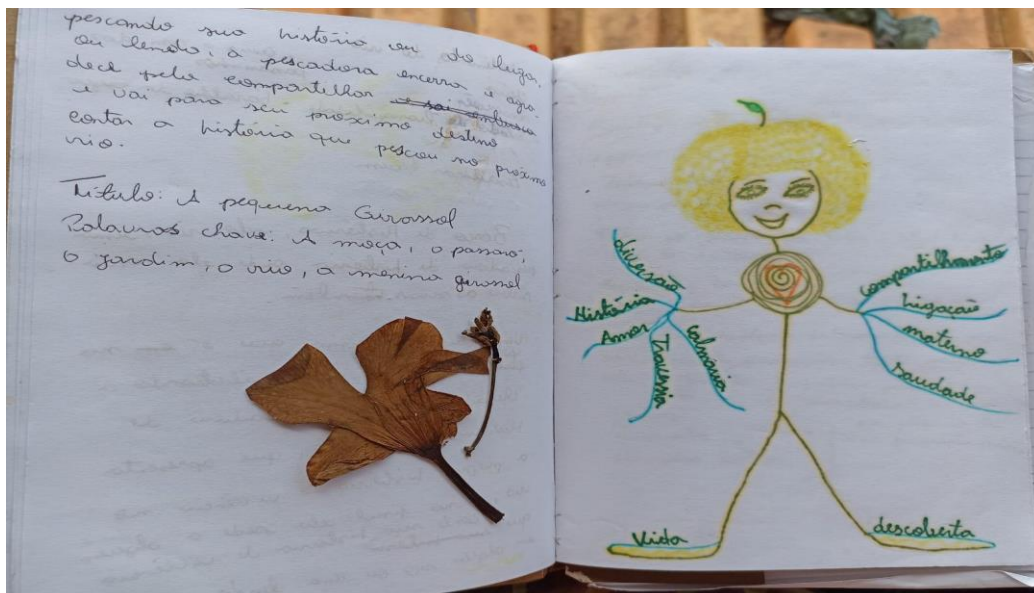 pescando sua história ou do lugar,
ou lendo, a pescadora encerra e agra-
dece pelo compartilhar e sai
e vai para seu próximo destino
contar a história que pescou no próximo
rio.
Título: A pequena Girassol
Palavras chave: A moça, o passaro,
o jardim, o rio, a menina girassol
diversão
História
Amor
Travessia
Calmaria
Compartilhamento
Ligação
materno
Saudade
Vida
descoberta